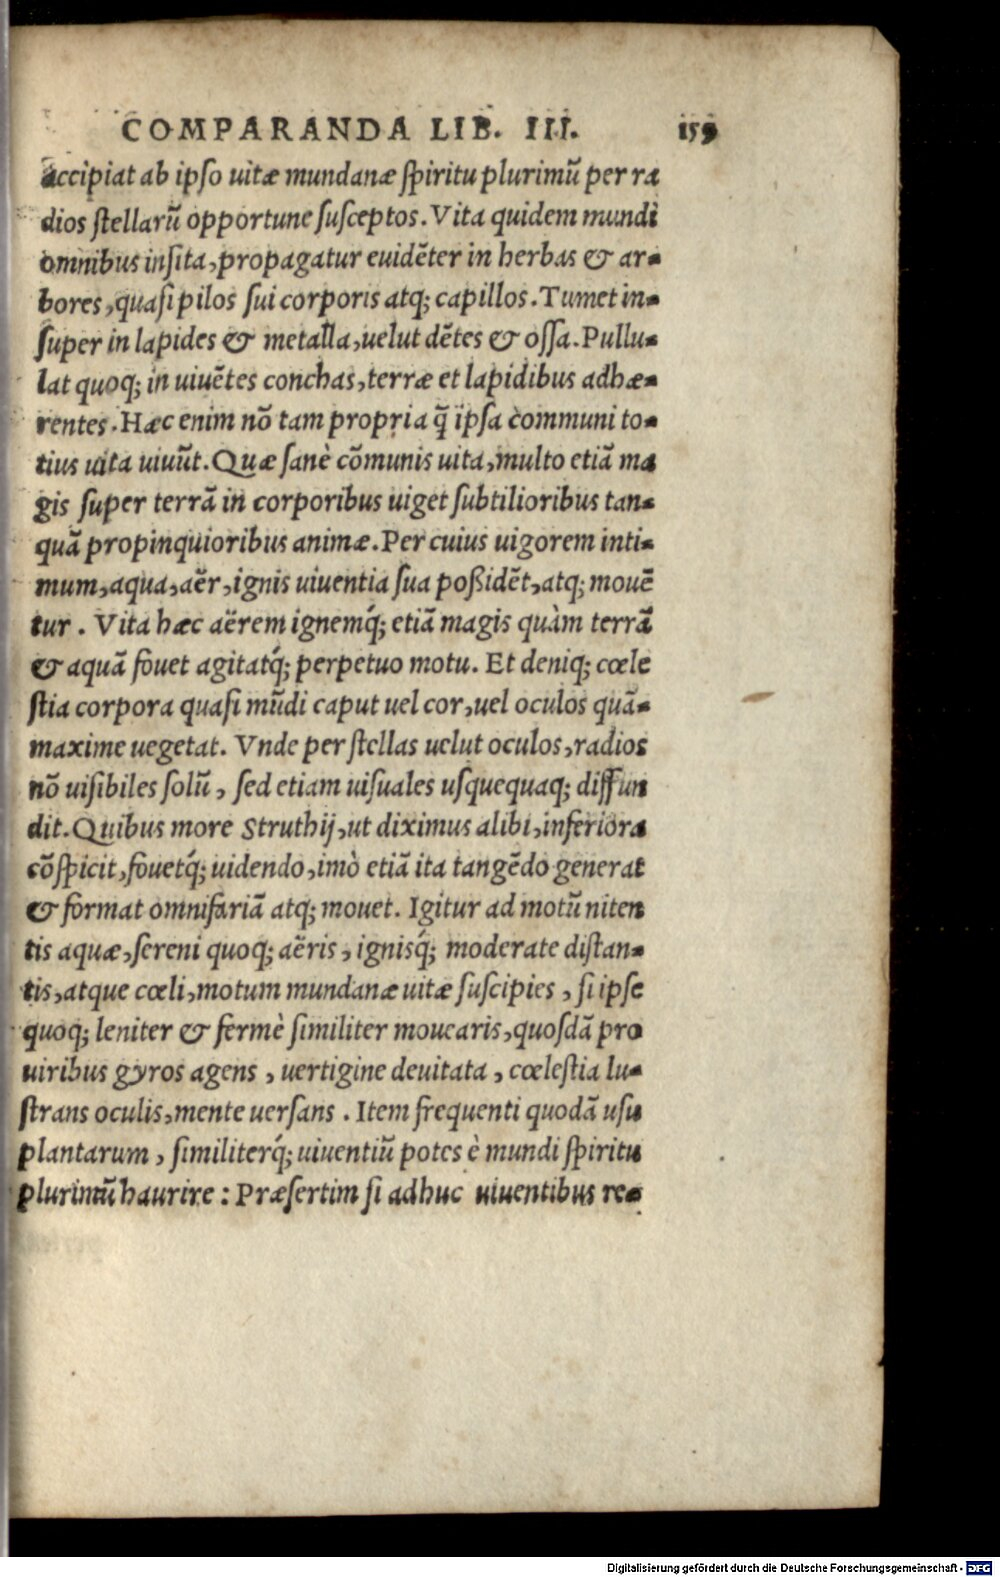 COMPARANDA LIB. III. 159
accipiat ab ipso uitæ mundanæ spiritu plurimũ per ra
dios stellarũ opportune susceptos. Vita quidem mundi
omnibus insita, propagatur euidẽter in herbas & ar-
bores, quasi pilos sui corporis atq; capillos. Tumet in-
super in lapides & metalla, uelut dẽtes & ossa. Pullu-
lat quoq; in uiuẽtes conchas, terræ et lapidibus adhæ-
rentes. Hæc enim nõ tam propria q̃ ipsa communi to-
tius uita uiuũt. Quæ sanè cõmunis uita, multo etiã ma
gis super terrã in corporibus uiget subtilioribus tan-
quã propinquioribus animæ. Per cuius uigorem inti-
mum, aqua, aër, ignis uiuentia sua poßidẽt, atq; mouẽ
tur. Vita hæc aërem ignemq́; etiã magis quàm terrã
& aquã fouet agitatq́; perpetuo motu. Et deniq; cœle
stia corpora quasi mũdi caput uel cor, uel oculos quã-
maxime uegetat. Vnde per stellas uelut oculos, radios
nõ uisibiles solũ, sed etiam uisuales usquequaq; diffun
dit. Quibus more Struthij, ut diximus alibi, inferiora
cõspicit, fouetq́; uidendo, imò etiã ita tangẽdo generat
& format omnifariã atq; mouet. Igitur ad motũ niten
tis aquæ, sereni quoq; aëris, ignisq́; moderate distan-
tis, atque cœli, motum mundanæ uitæ suscipies, si ipse
quoq; leniter & fermè similiter mouearis, quosdã pro
uiribus gyros agens, uertigine deuitata, cœlestia lu-
strans oculis, mente uersans. Item frequenti quodã usu
plantarum, similiterq́; uiuentiũ potes è mundi spiritu
plurimũ haurire: Præsertim si adhuc uiuentibus re-
Digitalisierung gefördert durch die Deutsche Forschungsgemeinschaft - DFG